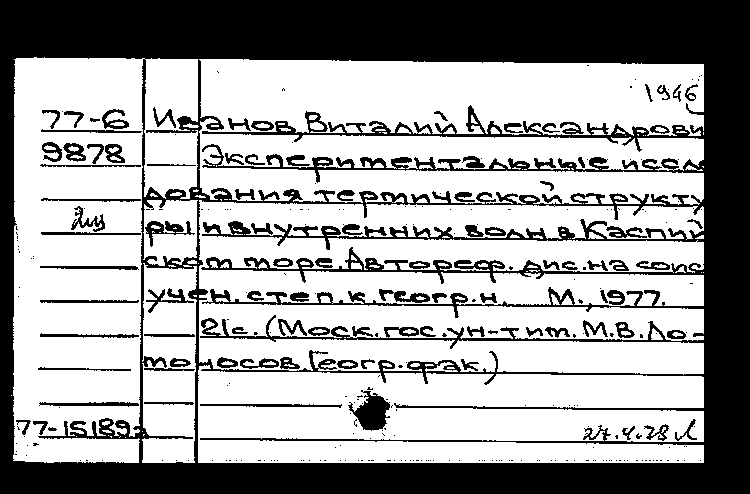 1946
77-6 Иванов, Виталий Александрови
9878 Экспериментальные иссле
дования термической структу
ры и внутренних волн в Каспий
ском море. Автореф. дис. на соис
учен. степ. к. геогр. н. М., 1977.
21с. (Моск. гос. ун-т им. М.В. Ло-
моносов. Геогр. фак.)
77-15189а